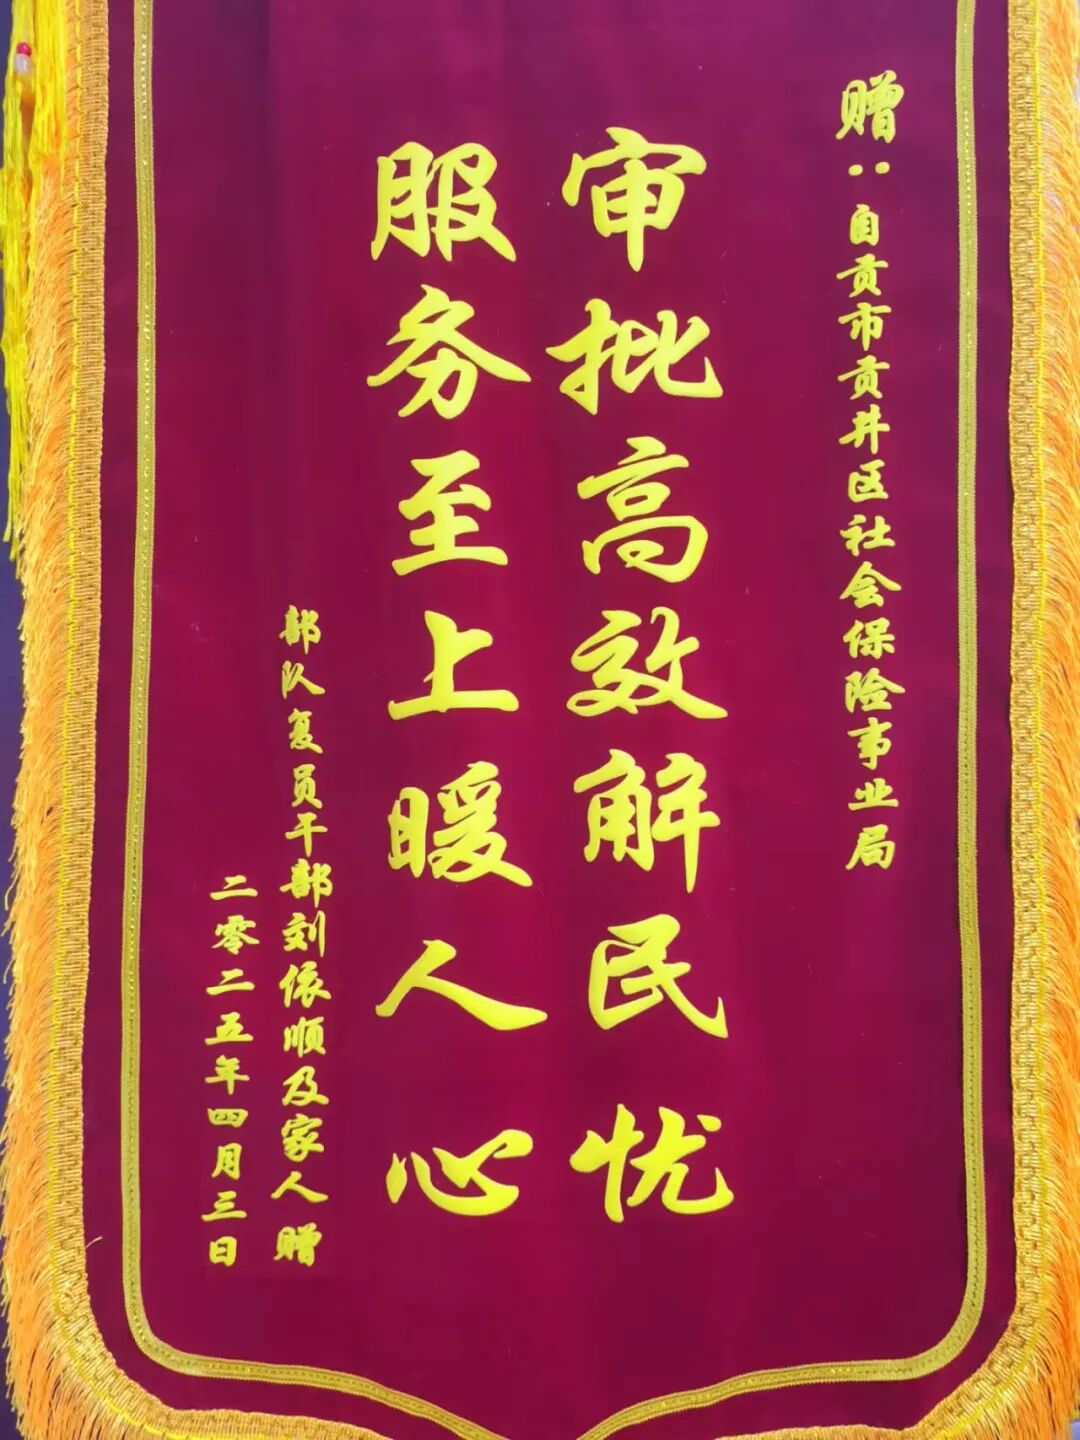 赠：自贡市贡井区社会保险事业局
审批高效解民忧
服务至上暖人心
部队复员干部刘依顺及家人赠
二零二五年四月三日